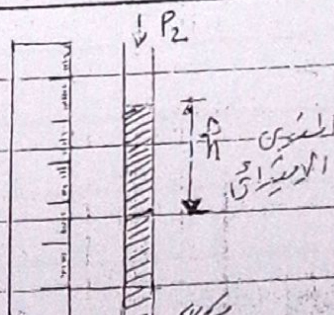 P₂
h
المستوى
الابتدائي